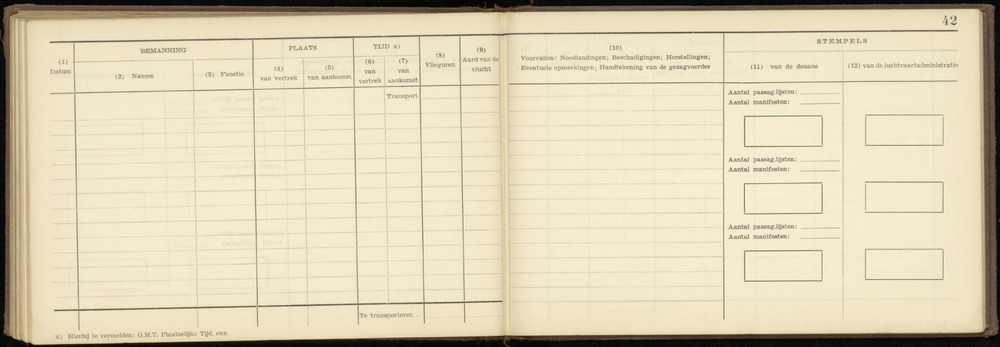 42
BEMANNING
PLAATS
TIJD x)
STEMPELS
(1)
Datum
(2) Namen
(3) Functie
(4)
van vertrek
(5)
van aankomst
(6)
van
vertrek
(7)
van
aankomst
(8)
Vlieguren
(9)
Aard van de
vlucht
(10)
Voorvallen: Noodlandingen; Beschadigingen; Herstellingen;
Eventuele opmerkingen; Handtekening van de gezagvoerder
(11) van de douane
(12) van de luchtvaartadministratie
Transport
Aantal passag.lijsten:
Aantal manifesten:
Aantal passag.lijsten:
Aantal manifesten:
Aantal passag.lijsten:
Aantal manifesten:
Te transporteren
x) Hierbij te vermelden: G.M.T. Plaatselijke Tijd, enz.